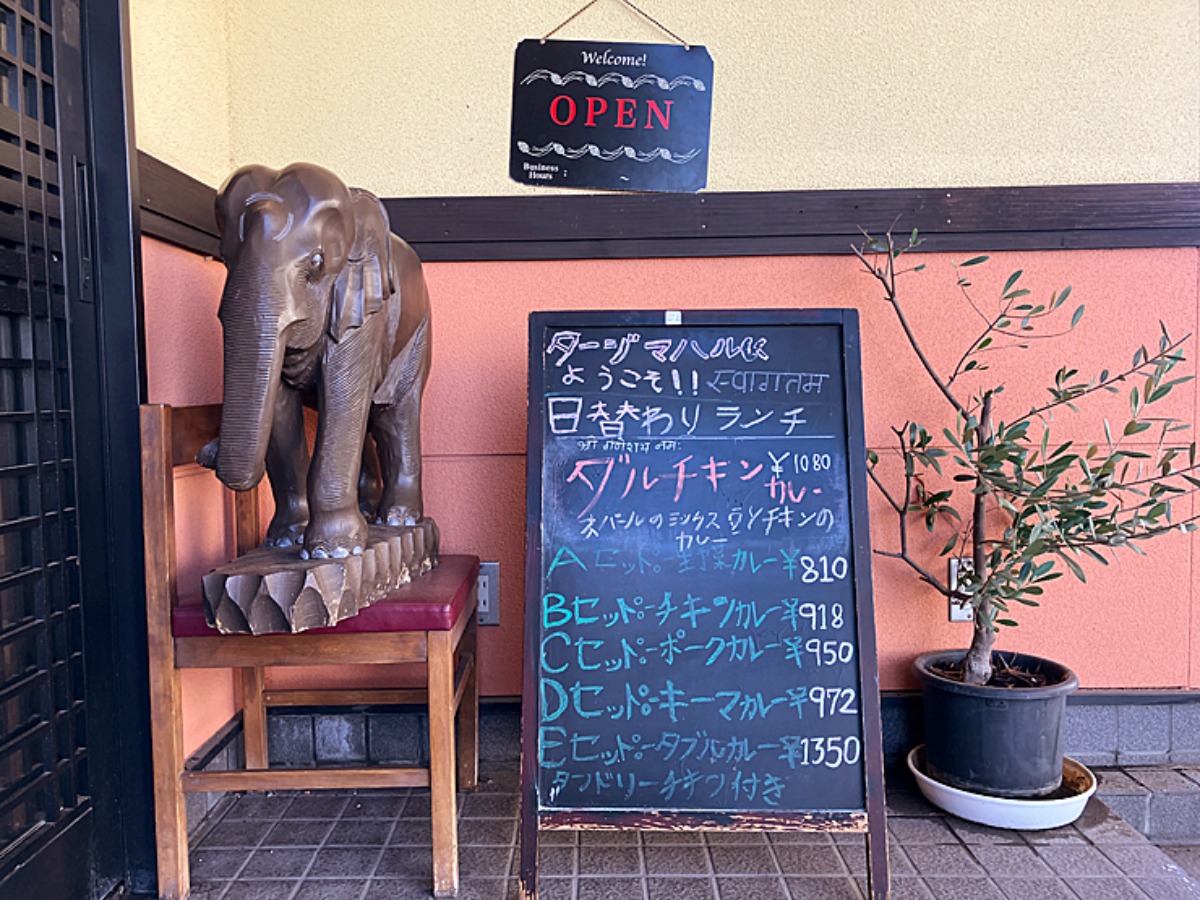 Welcome!
OPEN
Business
Hours : ~
タージマハルに
ようこそ!! स्वागतम
日替わりランチ
श्री गणेशाय नमः
ダルチキン ¥1080
カレー
ネパールのミックス豆とチキンの
カレー
Aセット・野菜カレー¥810
Bセット・チキンカレー¥918
Cセット・ポークカレー¥950
Dセット・キーマカレー¥972
Eセット・ダブルカレー¥1350
タンドリーチキン付き